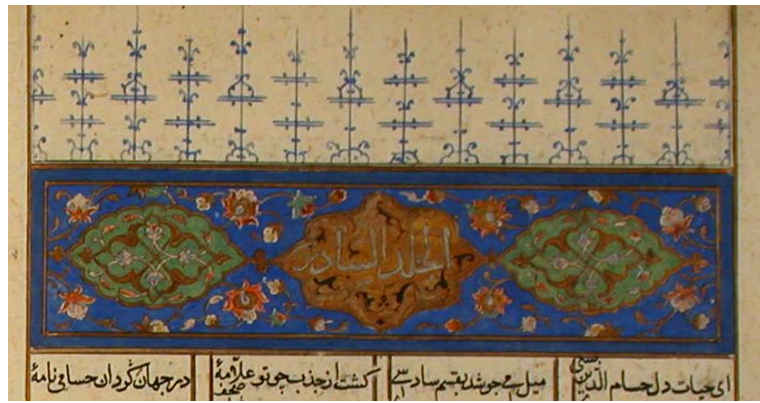 الجلد السادس
ای حیات دل حسام الدین بسی میل می جوشد بقسم سادسی کشت از جذب چو تو علامهٔ در جهان کردان حسامی نامهٔ